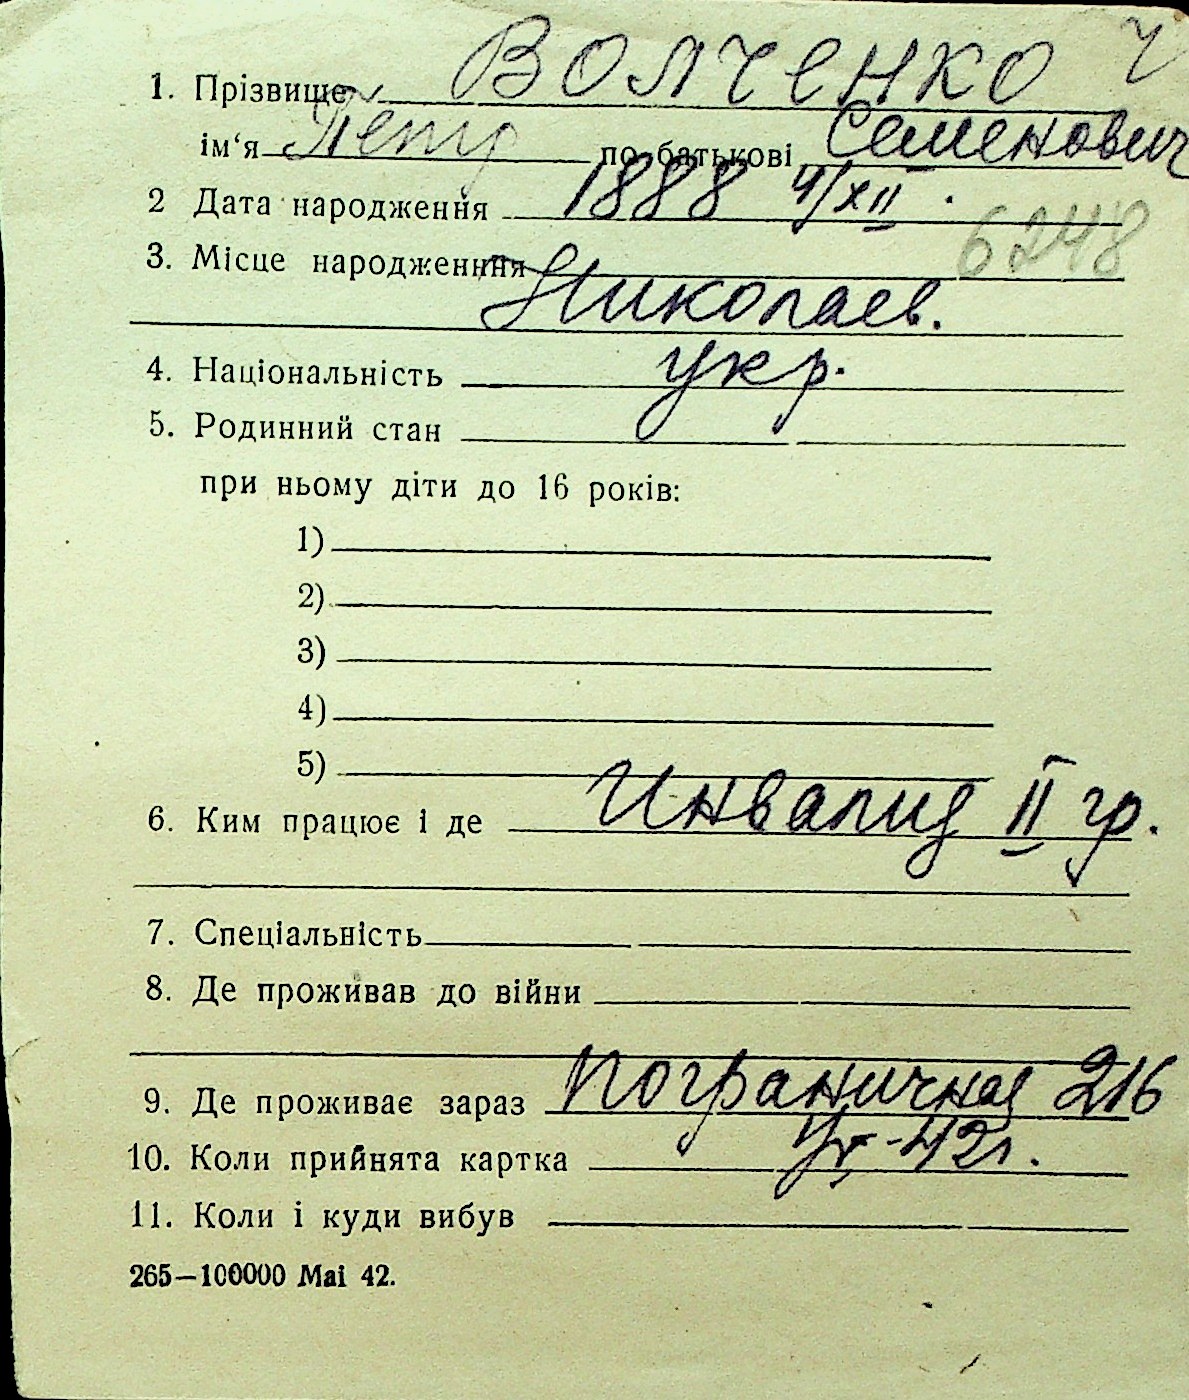 ч
1. Прізвище Волченко
ім‘я Петр по батькові Семенович
2 Дата народження 1888 4/XII.
6248
3. Місце народженння
Николаев.
4. Національність укр.
5. Родинний стан
при ньому діти до 16 років:
1)
2)
3)
4)
5)
6. Ким працює і де Инвалид II гр.
7. Спеціальність
8. Де проживав до війни
9. Де проживає зараз Пограничная 216
10. Коли прийнята картка 42г.
11. Коли і куди вибув
265—100000 Маі 42.